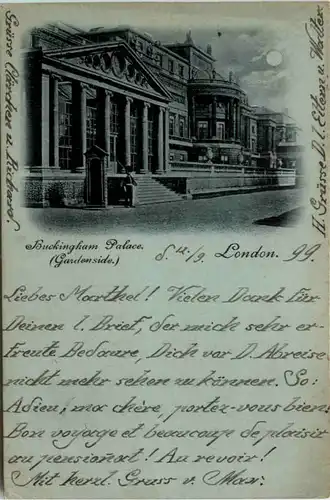 Buckingham Palace.
(Gardenside.)
London.
99.
Liebes Marthel! Vielen Dank für
Deinen l. Brief, der mich sehr er-
freute. Bedaure, Dich vor D. Abreise
nicht mehr sehen zu können. So:
Adieu, ma chère, portez-vous bien,
Bon voyage et beaucoup de plaisir
au pensionat! Au revoir!
Mit herzl. Gruss v. Max.
Grüsse Clärchen u. Richard.
H. Grüsse D. l. Eltern u. Walter.